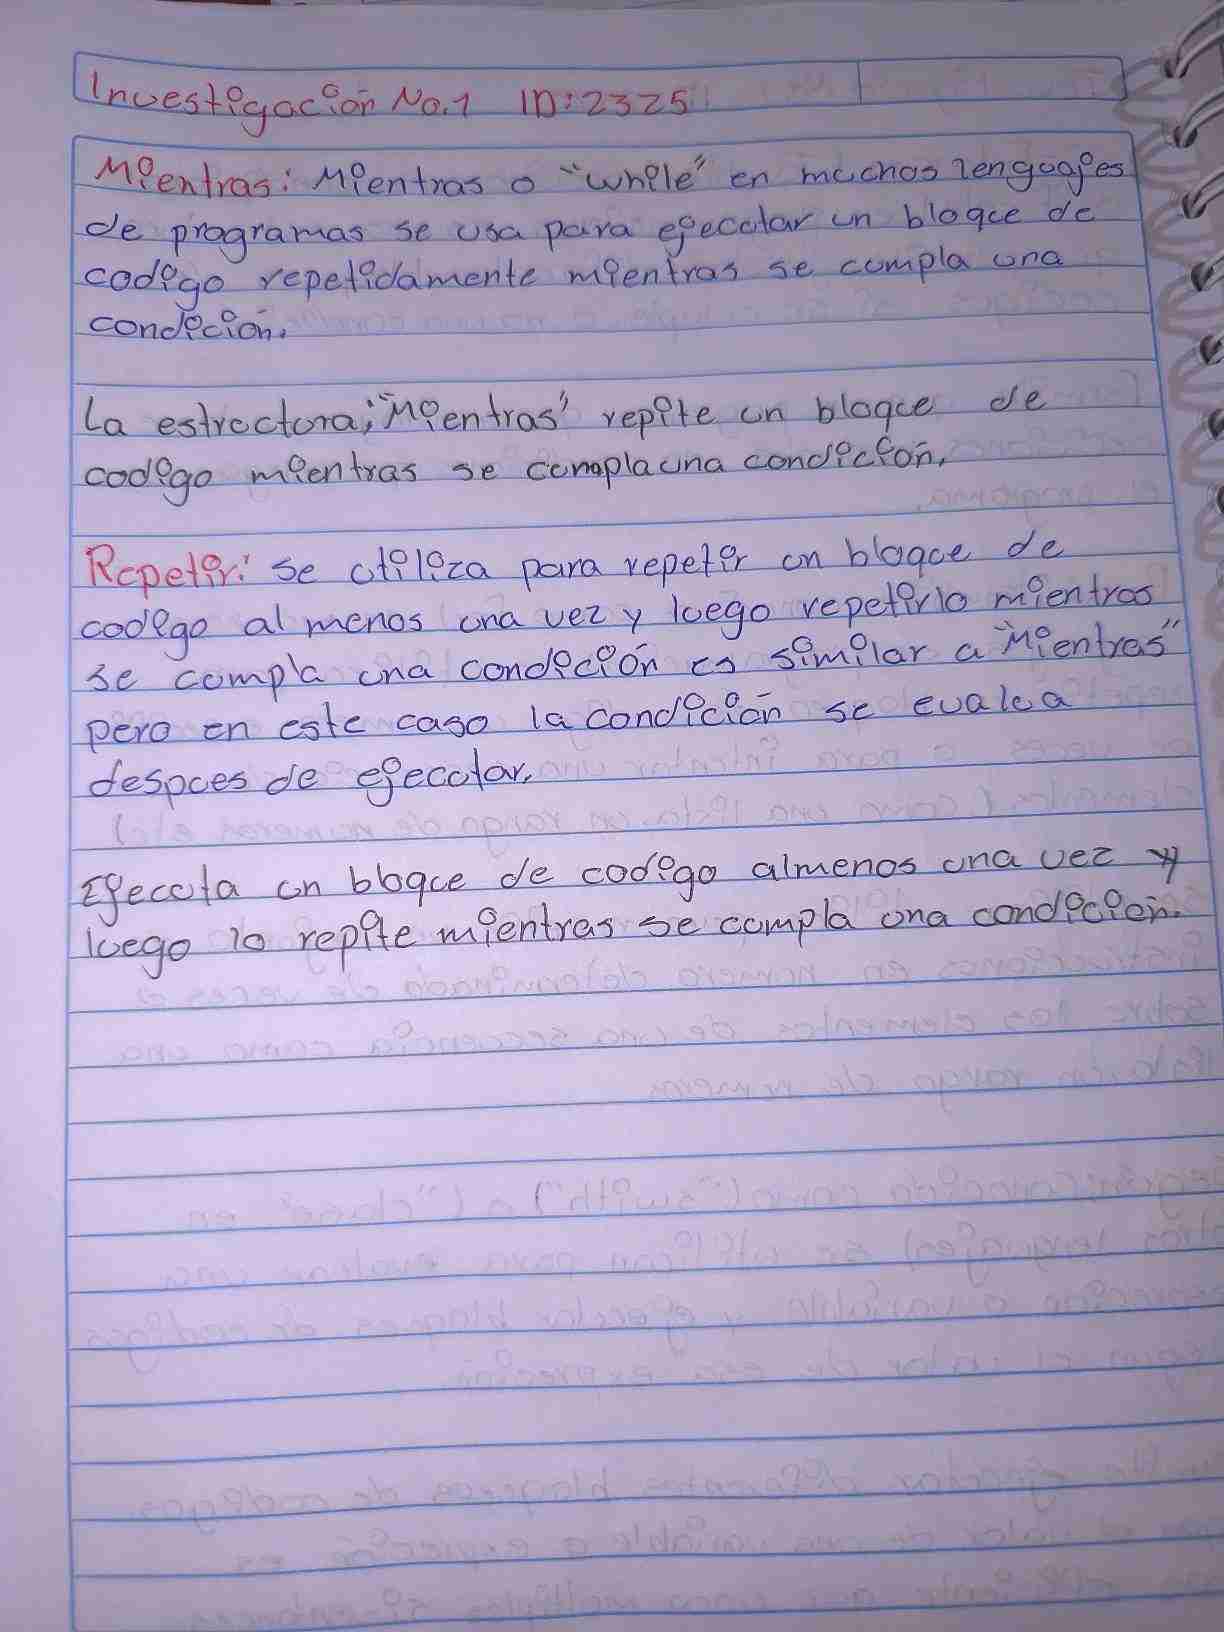 Investigación No.1 ID:2325
Mientras: Mientras o "while" en muchos lenguajes
de programas se usa para ejecutar un bloque de
codigo repetidamente mientras se cumpla una
condición.
La estructura; "Mientras" repite un bloque de
codigo mientras se cumpla una condición.
Repetir: Se utiliza para repetir un bloque de
codigo al menos una vez y luego repetirlo mientras
se cumpla una condición es similar a "Mientras"
pero en este caso la condición se evalua
despues de ejecutar.
Ejecuta un bloque de codigo almenos una vez y
luego lo repite mientras se cumpla una condición.